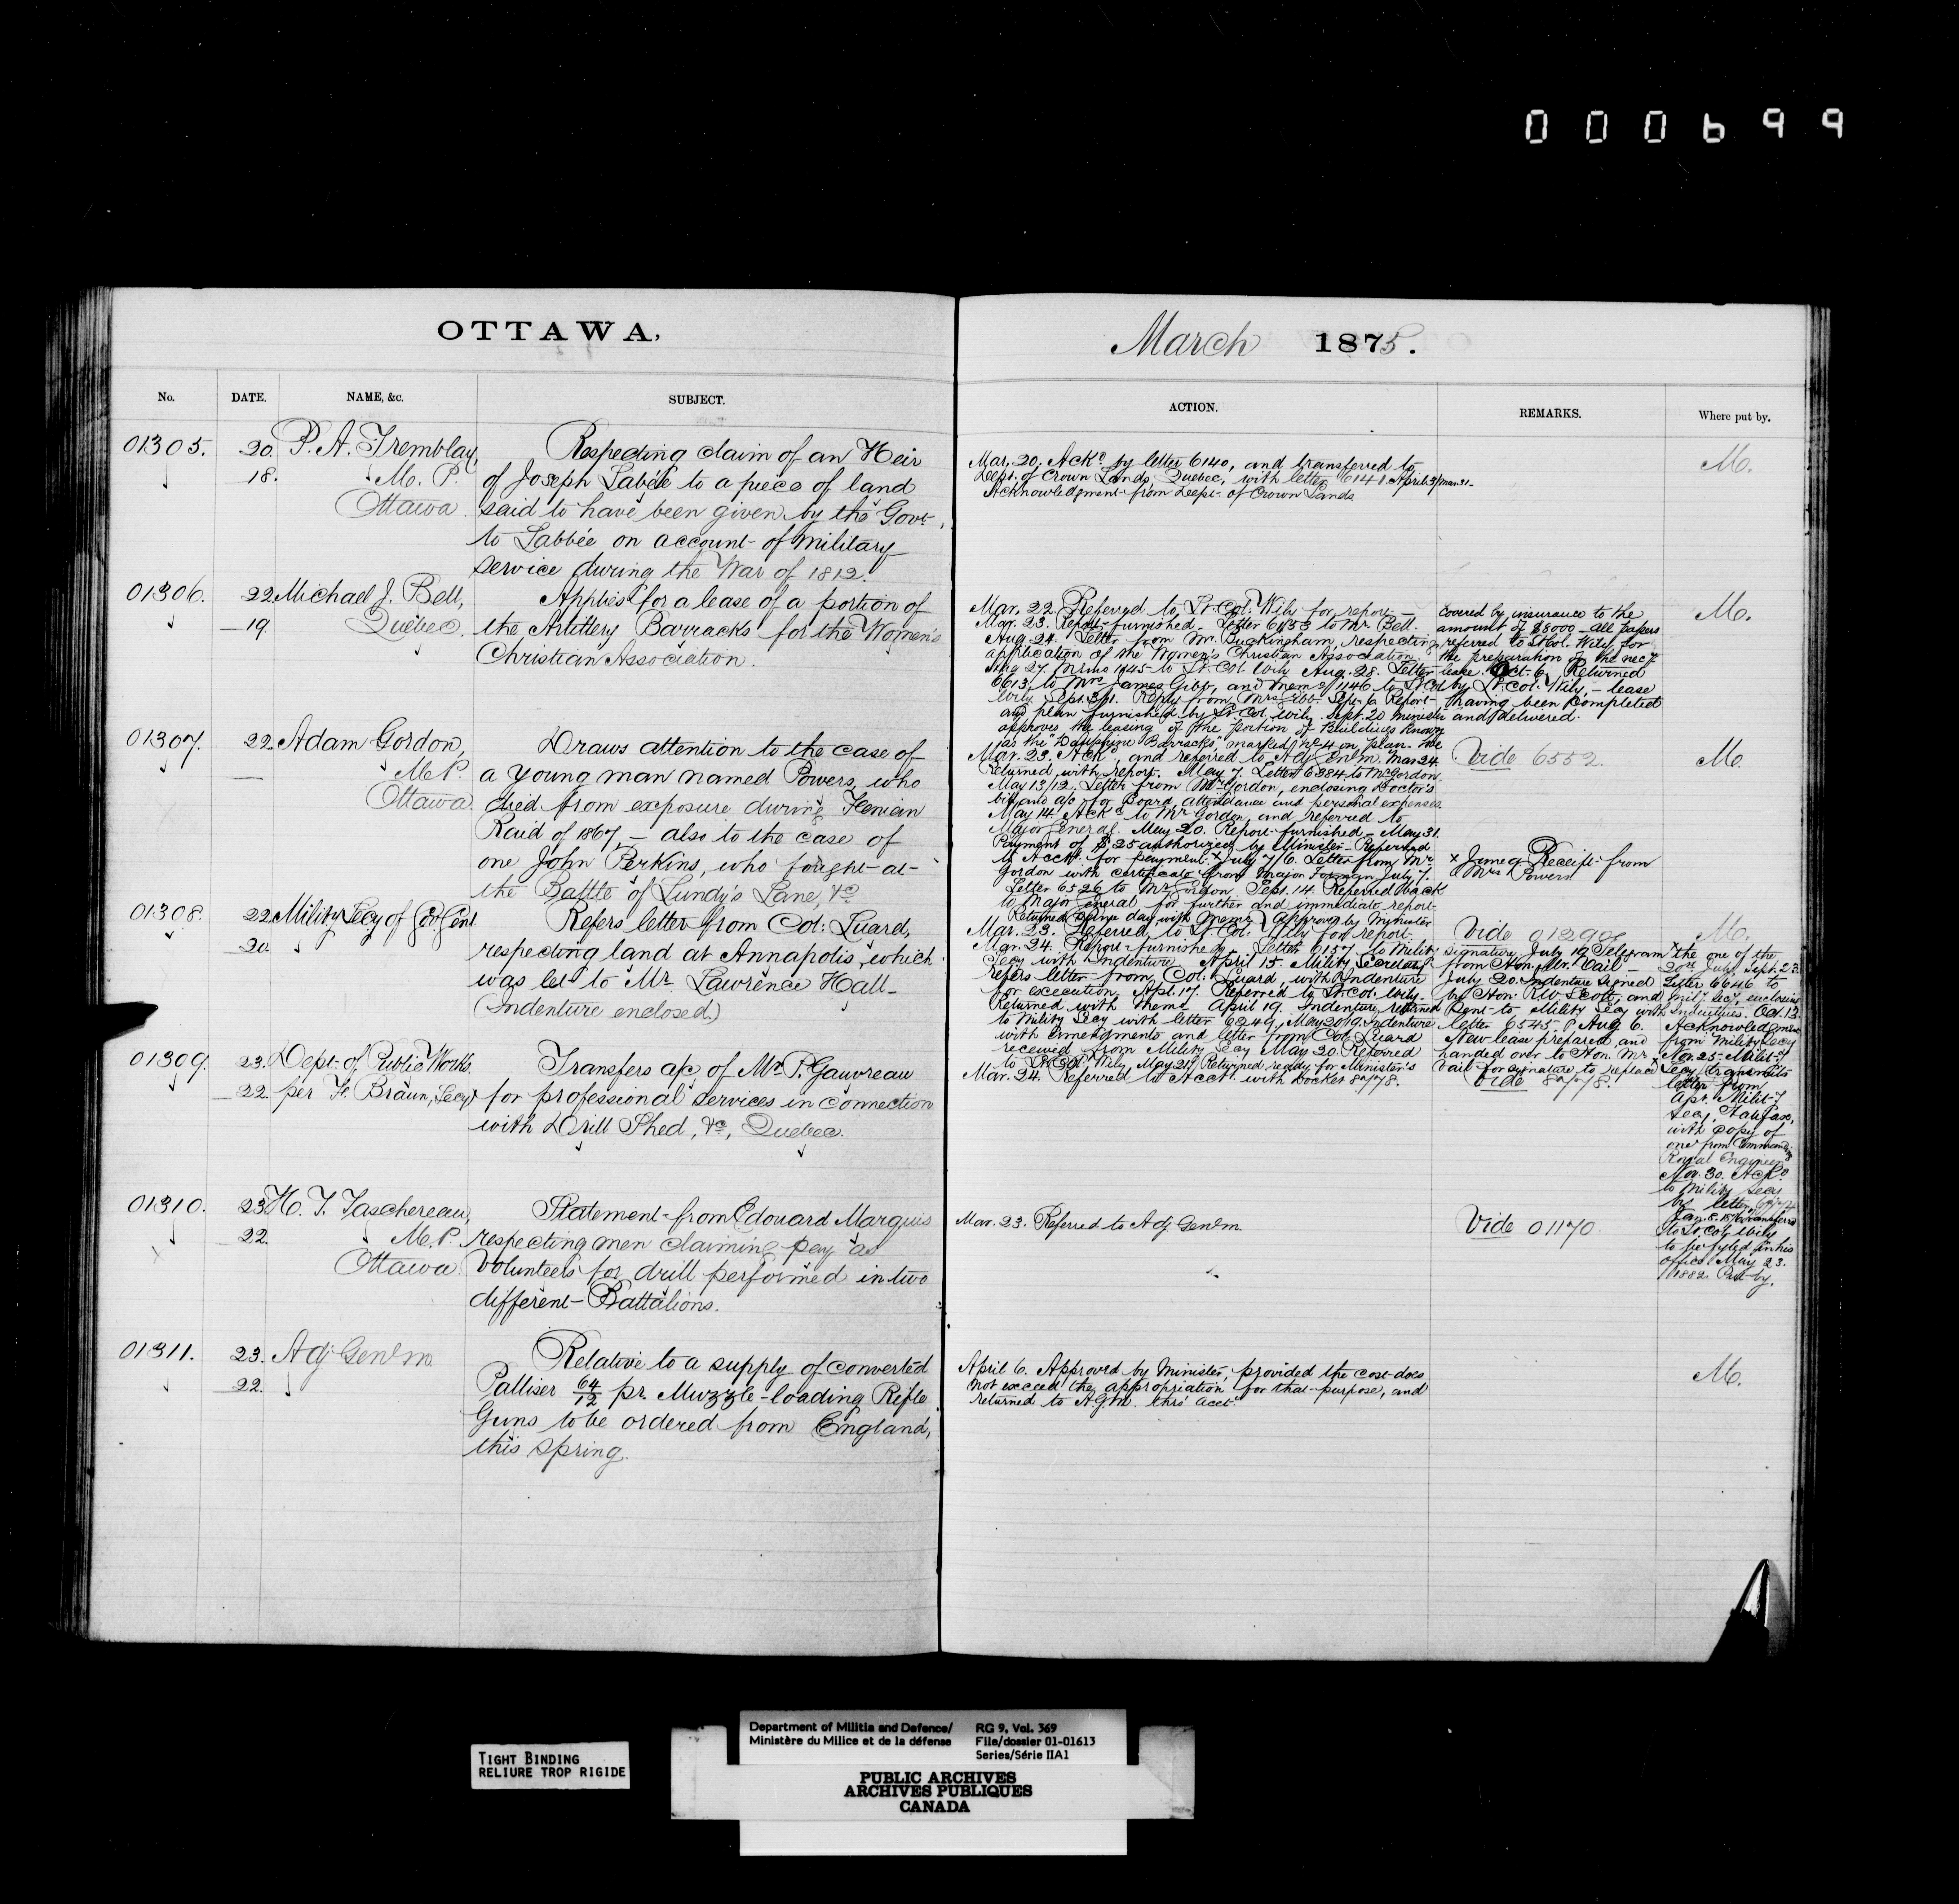 000699
OTTAWA,
March 1875.
No. DATE. NAME, &c. SUBJECT. ACTION. REMARKS. Where put by.
01305. 20. P. A. Tremblay,
18. M. P.
Ottawa.
Respecting claim of an Heir
of Joseph Labbée to a piece of land
said to have been given by the Govt.
to Labbée on account of military
service during the War of 1812.
Mar. 20. Ackd. by letter 6140, and transferred to
Dept. of Crown Lands, Quebec, with letter 6141. April 3/Mar. 31
Acknowledgment from Dept. of Crown Lands
M.
01306. 22. Michael J. Bell,
19. Quebec.
Applies for a lease of a portion of
the Artillery Barracks for the Women's
Christian Association.
Mar. 22. Referred to Lt. Col. Wily for report.
Mar. 23. Report furnished. Letter 6153 to Mr. Bell.
Aug. 24. Letter from Mr. Buckingham, respecting
application of the Women's Christian Association.
Aug 27. Memo 1145 to Lt. Col. Wily Aug. 28. Letter
6613 to Mrs. James Gibb, and Memo 1146 to Lt Col
Wily. Sept. 3/1. Reply from Mrs Gibb. Sept. 6. Report
and plan furnished by Lt. Col. Wily. Sept. 20 Minister
approves the leasing of the portion of Buildings known
as the "Dauphine Barracks," marked No 4 on plan. the
covered by insurance to the
amount of $8000 — All papers
referred to Lt Col. Wily for
the preparation of the necy
lease. Oct. 6. Returned
by Lt. Col. Wily, — lease
having been completed
and delivered.
M.
01307. 22. Adam Gordon,
— M. P.
Ottawa.
Draws attention to the case of
a young man named Powers, who
died from exposure during Fenian
Raid of 1867, — also to the case of
one John Perkins, who fought at
the Battle of Lundy's Lane, &c.
Mar. 23. Ackd., and referred to Adj. Genl. m. Mar 24
Returned, with report. May 7. Letter 6284 to Mr Gordon.
May 13/12. Letter from Mr Gordon, enclosing Doctor's
bill and a/c for Board, attendance and personal expenses.
May 14. Ackd. to Mr Gordon, and referred to
Major General. May 20. Report furnished — May 31.
Payment of $25 authorized by Minister — Referred
to Acct. for payment. x July 7/6. Letter from Mr.
Gordon with certificate from Major Forman July 7.
Letter 6526 to Mr Gordon. Sept. 14. Referred back
to Major General for further and immediate report.
Returned same day, with memo approved by Minister
Vide 6552.
x June 9. Receipt from
Mrs Powers.
M.
01308. 22. Military Secy of Gov. Genl.
20.
Refers letter from Col: Luard,
respecting land at Annapolis, which
was let to Mr. Lawrence Hall
(Indenture enclosed.)
Mar. 23. Referred to Lt. Col: Wily for report.
Mar. 24. Report furnished. Letter 6157 to Mility
Secy with Indenture. April 15. Military Secretary
refers letter from Col: Luard, with Indenture
for execution. Apl. 17. Referred to Lt. Col: Wily.
Returned with memo. April 19. Indenture returned
to Mility Secy with letter 6249. May 20/19. Indenture
with amendments and letter from Col: Luard
received from Mility Secy May 20. Referred
to Lt. Col. Wily. May 21. Returned ready for Minister's
Vide 01290
signature July 19 Telegram
from Hon. Mr. Vail —
July 20. Indenture signed
by Hon: R. W. Scott, and
sent to Mility Secy with
letter 6545. Aug 6.
New lease prepared, and
handed over to Hon. Mr.
Vail for signature to replace
M.
x the one of the
20th July. Sept. 23
Letter 6646 to
Mily Secy, enclosing
Indentures. Oct. 13
Acknowledgment
from Mility Secy
Nov. 25. Milit.y
Secy transmits
letter from
Apt. Milit.y
Secy, Halifax,
with copy of
one from Commanding
Royal Engineer
Nov. 30. Ackd.
to Mility Secy
by letter
Jan. 8. transferred
to Lt. Col. Wily
to be fyled in his
office. May 23.
1882. Put by.
01309. 23. Dept. of Public Works.
22. per F. Braun, Secy
Transfers a/c of Mr. P. Gauvreau
for professional services in connection
with Drill Shed, &c, Quebec.
Mar. 24. Referred to Acct. with Docket 8778.
Vide 8778.
01310. 23. H. T. Taschereau,
22. M. P.
Ottawa.
Statement from Edouard Marquis
respecting men claiming pay as
Volunteers for drill performed in two
different Battalions.
Mar. 23. Referred to Adj. Genl. m.
Vide 01170.
01311. 23. Adj Genl m.
22.
Relative to a supply of converted
Palliser 64/12 pr. Muzzle-loading Rifle
Guns to be ordered from England,
this spring.
April 6. Approved by Minister, provided the cost does
not exceed the appropriation for that purpose, and
returned to A.G.m. thro' Acct.
M.
TIGHT BINDING
RELIURE TROP RIGIDE
Department of Militia and Defence/
Ministère du Milice et de la défense
RG 9, Vol. 369
File/dossier 01-01613
Series/Série IIA1
PUBLIC ARCHIVES
ARCHIVES PUBLIQUES
CANADA